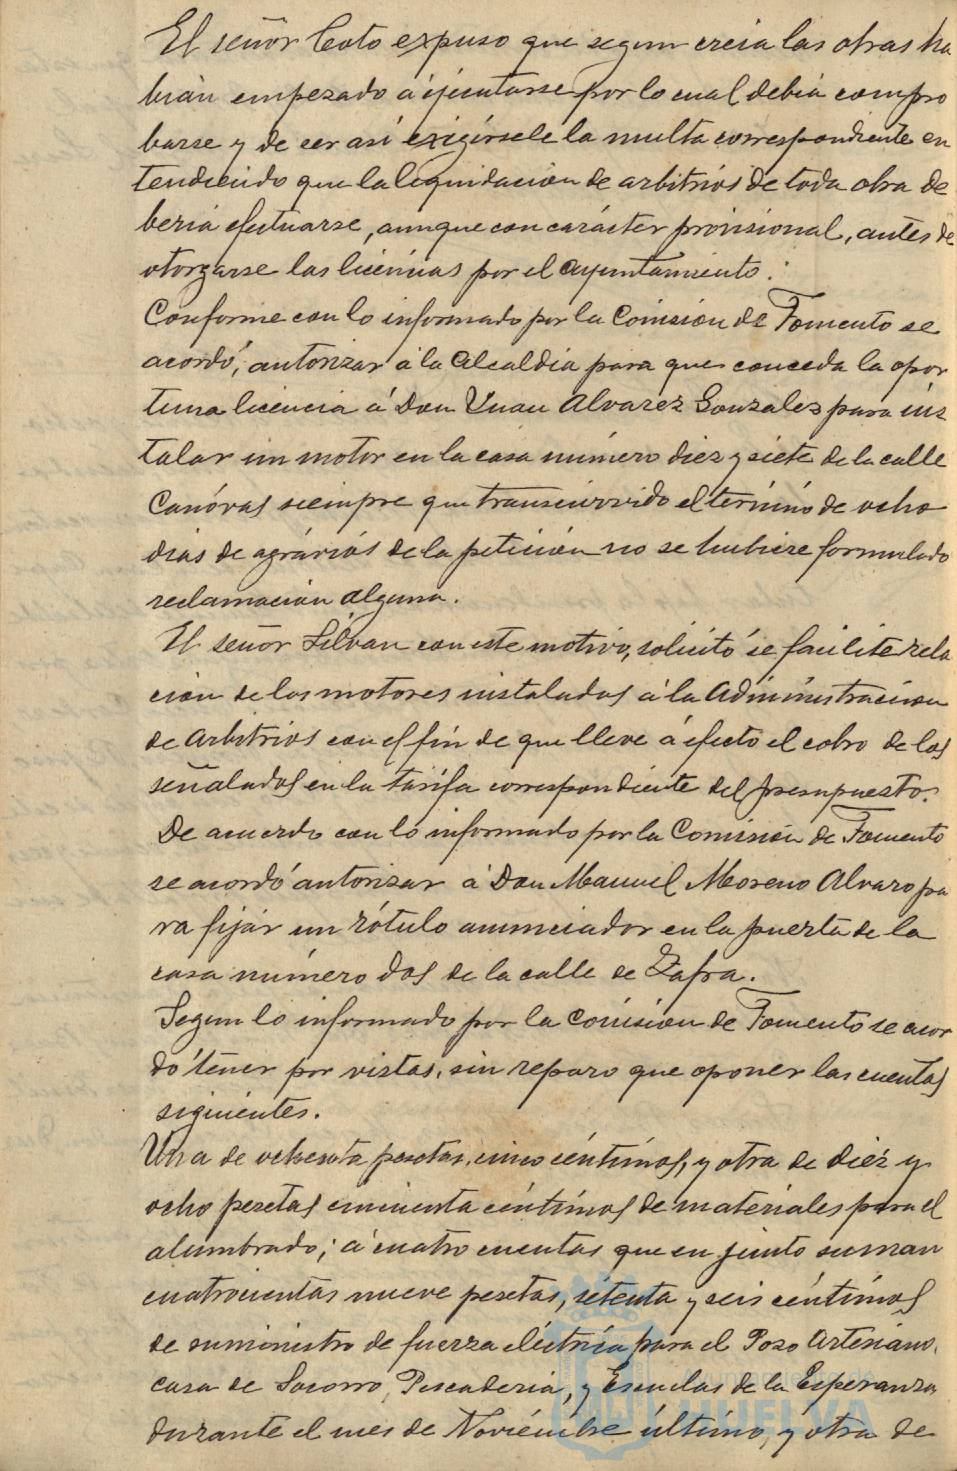 El señor Coto expuso que segun creia las obras ha
bian empezado á ejecutarse por lo cual debia compro
barse y de ser asi exigirsele la multa correspondiente en
tendiendo que la liquidacion de arbitrios de toda obra de
beria efectuarse, aunque con carácter provisional, antes de
otorgarse las licencias por el Ayuntamiento.
Conforme con lo informado por la Comision de Fomento se
acordó, autorizar á la Alcaldia para que conceda la opor
tuna licencia á Don Juan Alvarez Gonzalez para ins
talar un motor en la casa número diez y siete de la calle
Canóvas siempre que transcurrido el término de ocho
dias de agrávios de la petición no se hubiere formulado
reclamacion alguna.
El señor Silvan con este motivo, solicitó se facilite rela
cion de los motores instalados á la Administracion
de Arbitrios con el fin de que lleve á efecto el cobro de los
señalados en la tarifa correspondiente del presupuesto.
De acuerdo con lo informado por la Comisión de Fomento
se acordó autorizar á Don Manuel Moreno Alvaro pa
ra fijar un rótulo anunciador en la puerta de la
casa número dos de la calle de Zafra.
Segun lo informado por la Comision de Fomento se acor
dó tener por vistas, sin reparo que oponer las cuentas
siguientes.
Una de ochenta pesetas, cinco céntimos, y otra de diez y
ocho pesetas cincuenta céntimos de materiales para el
alumbrado; á cuatro cuentas que en junto suman
cuatrocientas nueve pesetas, setenta y seis céntimos
de suministro de fuerza eléctrica para el Pozo Artesiano,
casa de Socorro, Pescaderia, y Escuelas de la Esperanza
durante el mes de Noviembre último, y otra de
HUELVA